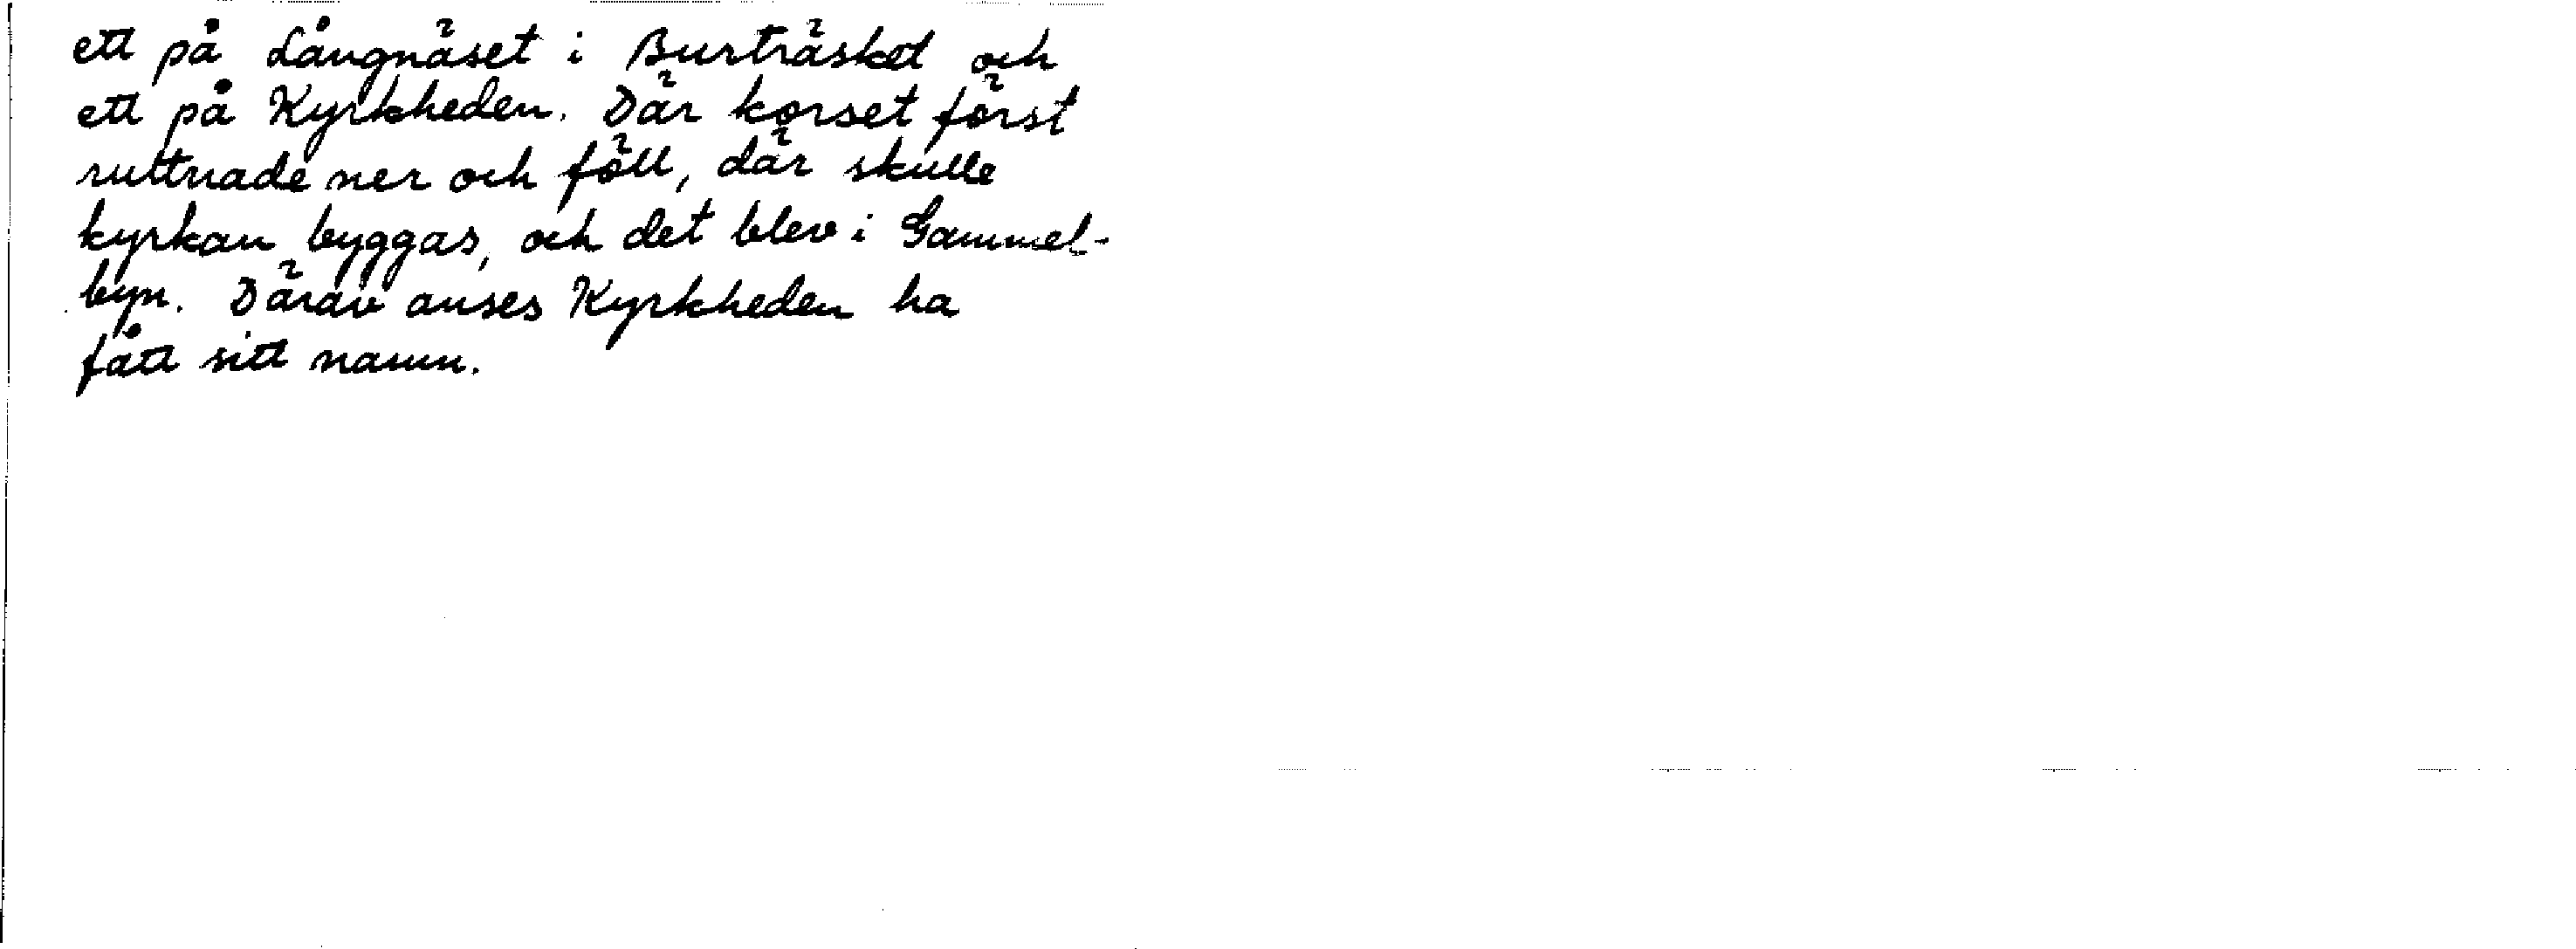 ett på Långnäset i Burträsket och
ett på Kyrkheden. Där korset först
ruttnade ner och föll, där skulle
kyrkan byggas, och det blev i Gammel-
byn. Därav anses Kyrkheden ha
fått sitt namn.